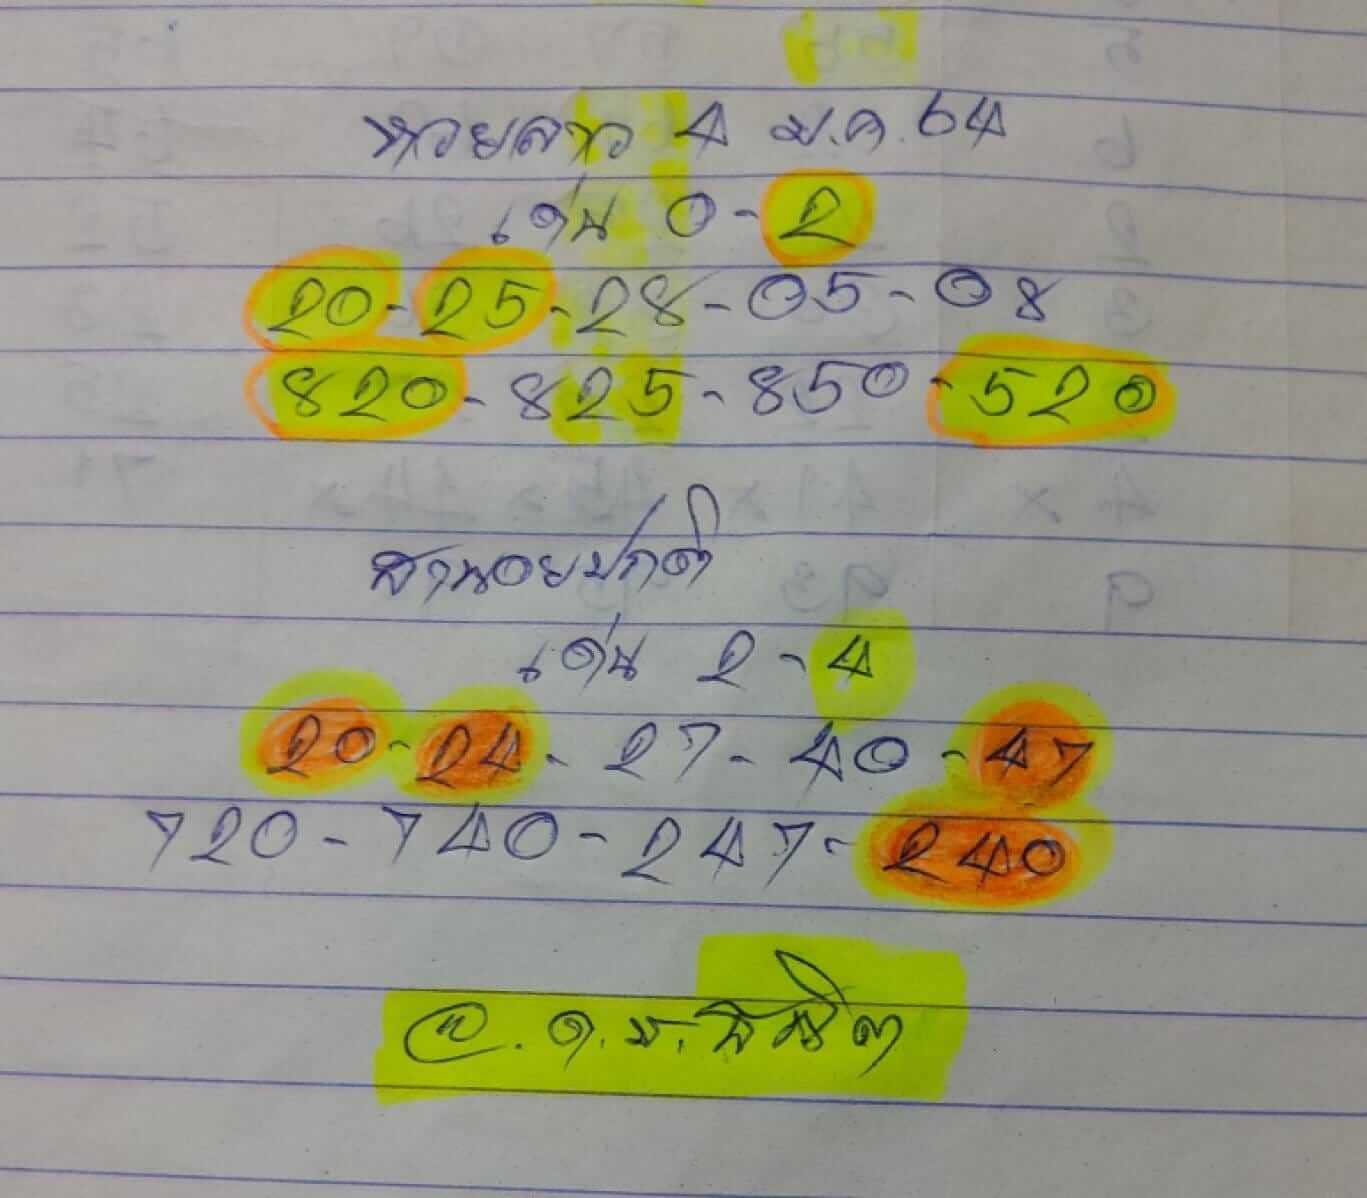 หวยลาว 4 ม.ค. 64
เด่น 0-2
20-25-28-05-08
820-825-850-520
ฮานอยปกติ
เด่น 2-4
20-24-27-40-47
720-740-247-240
@.ด.ช.พิชิต